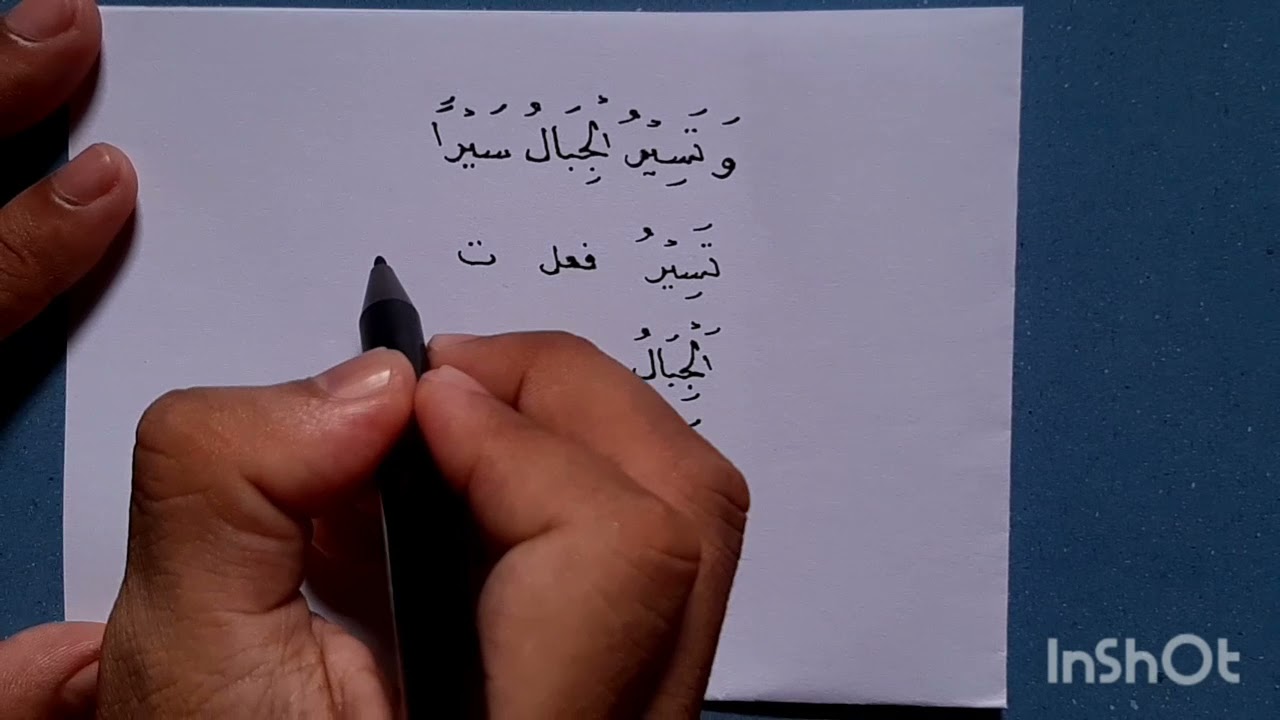 وَ تَسِيْرُ الْجِبَالُ سَيْرًا
تَسِيْرُ فعل ت
اَلْجِبَالُ
InShOt